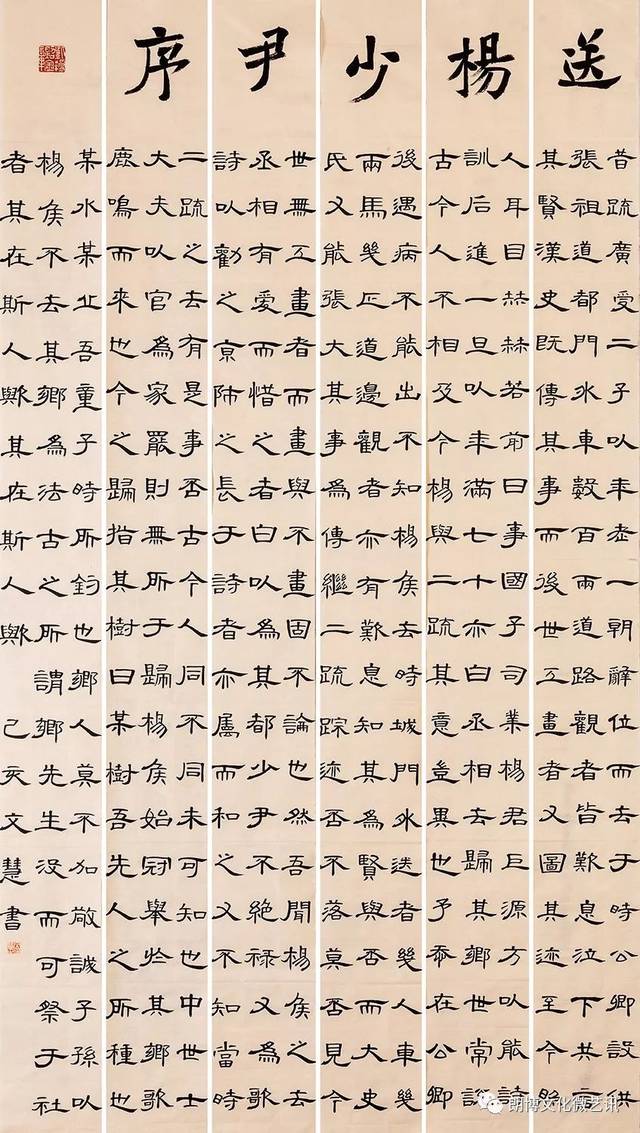 送楊少尹序
昔疏廣受二子以年老一朝辭位而去于時公卿設供
張祖道都門外車數百兩道路觀者皆難息泣下共言
其賢漢史既傳其事而後世工畫者又圖其迹至今照
人耳目赫赫若前日事國子司業楊君巨源方以能詩
訓后進一旦以年滿七十亦白丞相去歸其鄉世常說
古今人不相及今楊與二疏其意豈異也予忝在公卿
後遇病不能出不知楊侯去時城門外送者幾人車幾
兩馬幾匹道邊觀者亦有難息知其為賢與否而大史
氏又能張大其事為傳繼二疏踪迹否不落莫否見今
世無工畫者而畫與不畫固不論也然吾聞楊侯之去
丞相有愛而惜之者白以為其都少尹不絕祿又為歌
詩以勸之京師之長于詩者亦屬而和之又不知當時
二疏之去有是事否古今人同不同未可知也中世士
大夫以官為家罷則無所于歸楊侯始冠舉於其鄉歌
鹿鳴而來也今之歸指其樹曰某樹吾先人之所種也
某水某丘吾童子時所釣也鄉人莫不加敬誡子孫以
楊侯不去其鄉為法古之所謂鄉先生沒而可祭于社
者其在斯人歟其在斯人歟 己亥文慧書
朗博文化微艺讯